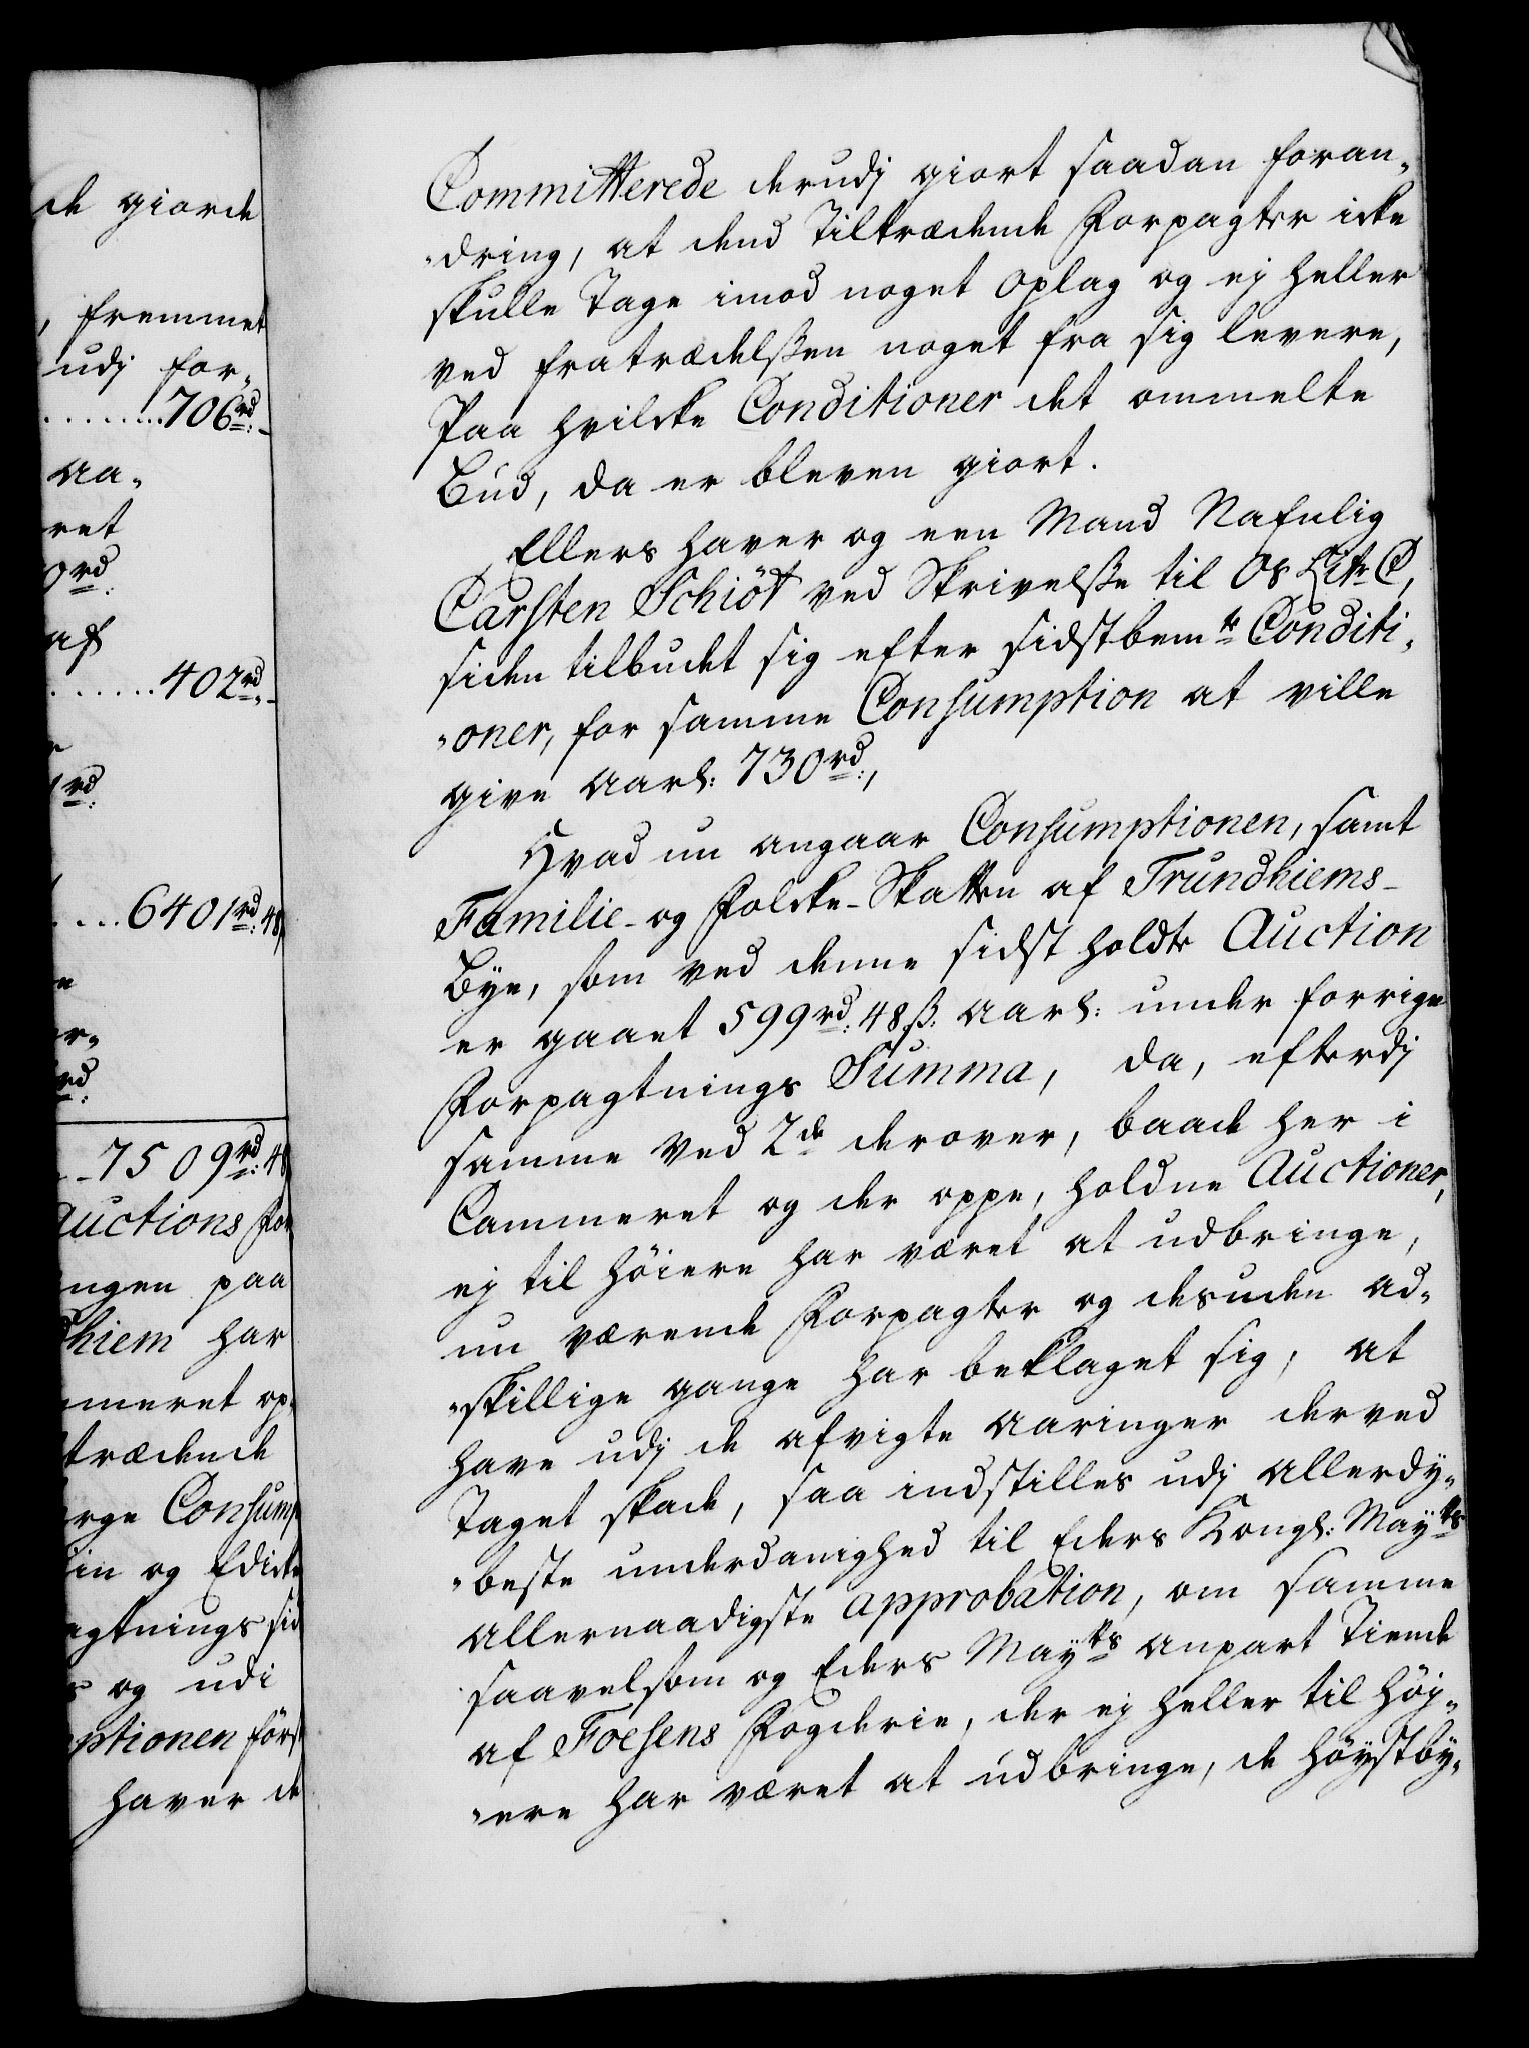 de giorde
, fremmet
udj for„
........706rd:-
aa„
ret
0rd:
af
.......402rd:-
1rd:
....6401rd: 48
er„
rd:
--7509rd: 48
Auctions for
ingen paa
dhiem har
meret op„
trædende
rge Consump
in og Edicte
agtnings sid
og udi
ptionen först
haver de
Committerede derudj giort saadan foran„
„dring, at dend Tiltrædende Forpagter icke
skulle Tage imod noget Oplag og ej heller
ved fratrædelßen noget fra sig levere,
Paa hvilcke Conditioner det ommelte
Bud, da er bleven giort.
Ellers haver og een Mand Nafnlig
Carsten Schiöt ved Skrivelße til Os Litr C,
siden tilbudet sig efter sidstbemte Conditi„
„oner, for samme Consumption at ville
give aarl: 730rd:,
Hvad nu angaar Consumptionen, samt
Familie- og Folcke-Skatten af Trundhiems-
Bye, som ved denne sidst holdte Auction
er gaaet 599rd: 48ß: aarl: under forrige
Forpagtnings Summa, da, efterdj
samme ved 2de derover, baade her i
Cammeret og der oppe, holdne Auctioner,
ej til höiere har været at udbringe,
nu værende Forpagter og desuden ad„
„skillige gange har beklaget sig, at
have udj de afvigte Aaringer derved
Taget skade, saa indstilles udj allerdy„
„beste underdanighed til Eders Kongl: Mayts
allernaadigste approbation, om samme
saavelsom og Eders Mayts anpart Tiende
af Foesens Fogderie, der ej heller til höj„
„ere har været at udbringe, de höystby„